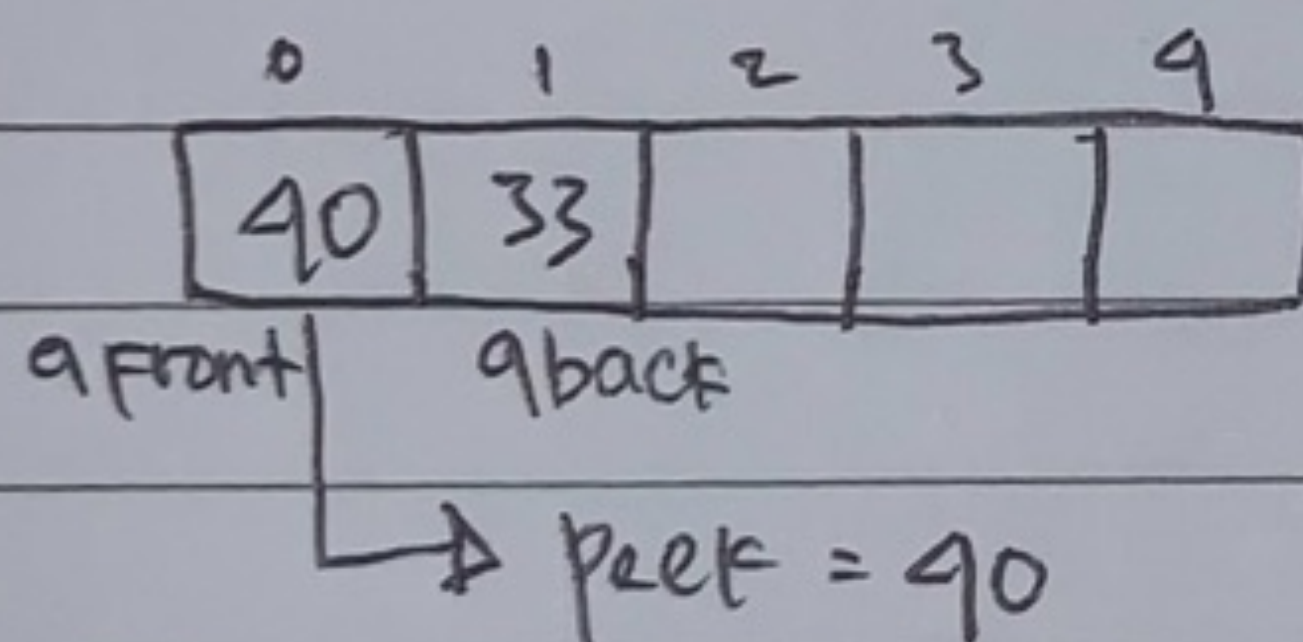 0 1 2 3 4
40 33
qFront qback
peek = 40